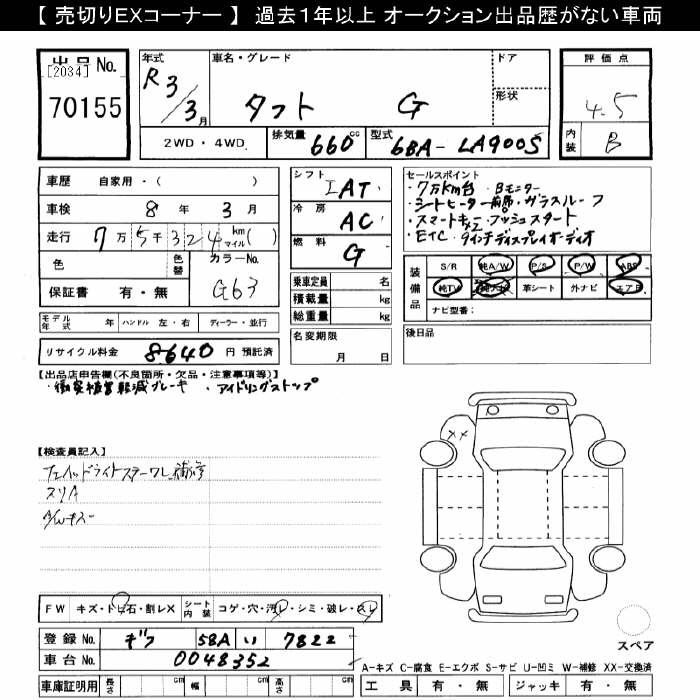 【 売切りEXコーナー 】 過去1年以上 オークション出品歴がない車両
出品 No.
[2034]
70155
年式
R3/3月
車名・グレード
タフト G
ドア
形状
評価点
4.5
内装
B
2WD・4WD
排気量
660cc
型式
6BA-LA900S
車歴 自家用・( )
車検 8年 3月
走行 7万5千324 km マイル( )
色
色替
カラーNo.
G63
保証書 有・無
シフト
IAT
冷房
AC
燃料
G
乗車定員 名
積載量 kg
総重量 kg
セールスポイント
・7万km台 ・Bモニター
・シートヒーター前席・ガラスルーフ
・スマートキー×2 プッシュスタート
・ETC ・9インチディスプレイオーディオ
装備品
S/R 純A/W P/S P/W ABS
純TV 純ナビ 革シート 外ナビ エアB
ナビ型番:
モデル年式 年
ハンドル 左・右
ディーラー・並行
リサイクル料金 8640 円 預託済
名変期限
月 日
後日品
【出品店申告欄(不良箇所・欠品・注意事項等)】
・衝突被害軽減ブレーキ ・アイドリングストップ
【検査員記入】
スリA
A/Wキズ
××
FW キズ・トビ石・割レX
シート内装 コゲ・穴・汚レ・シミ・破レ・スレ
登録 No. 58A い 7822
車台 No. 0048352
車庫証明用 長さ cm 幅 cm 高さ cm
スペア
A-キズ C-腐食 E-エクボ S-サビ U-凹ミ W-補修 XX-交換済
工具 有・無 ジャッキ 有・無